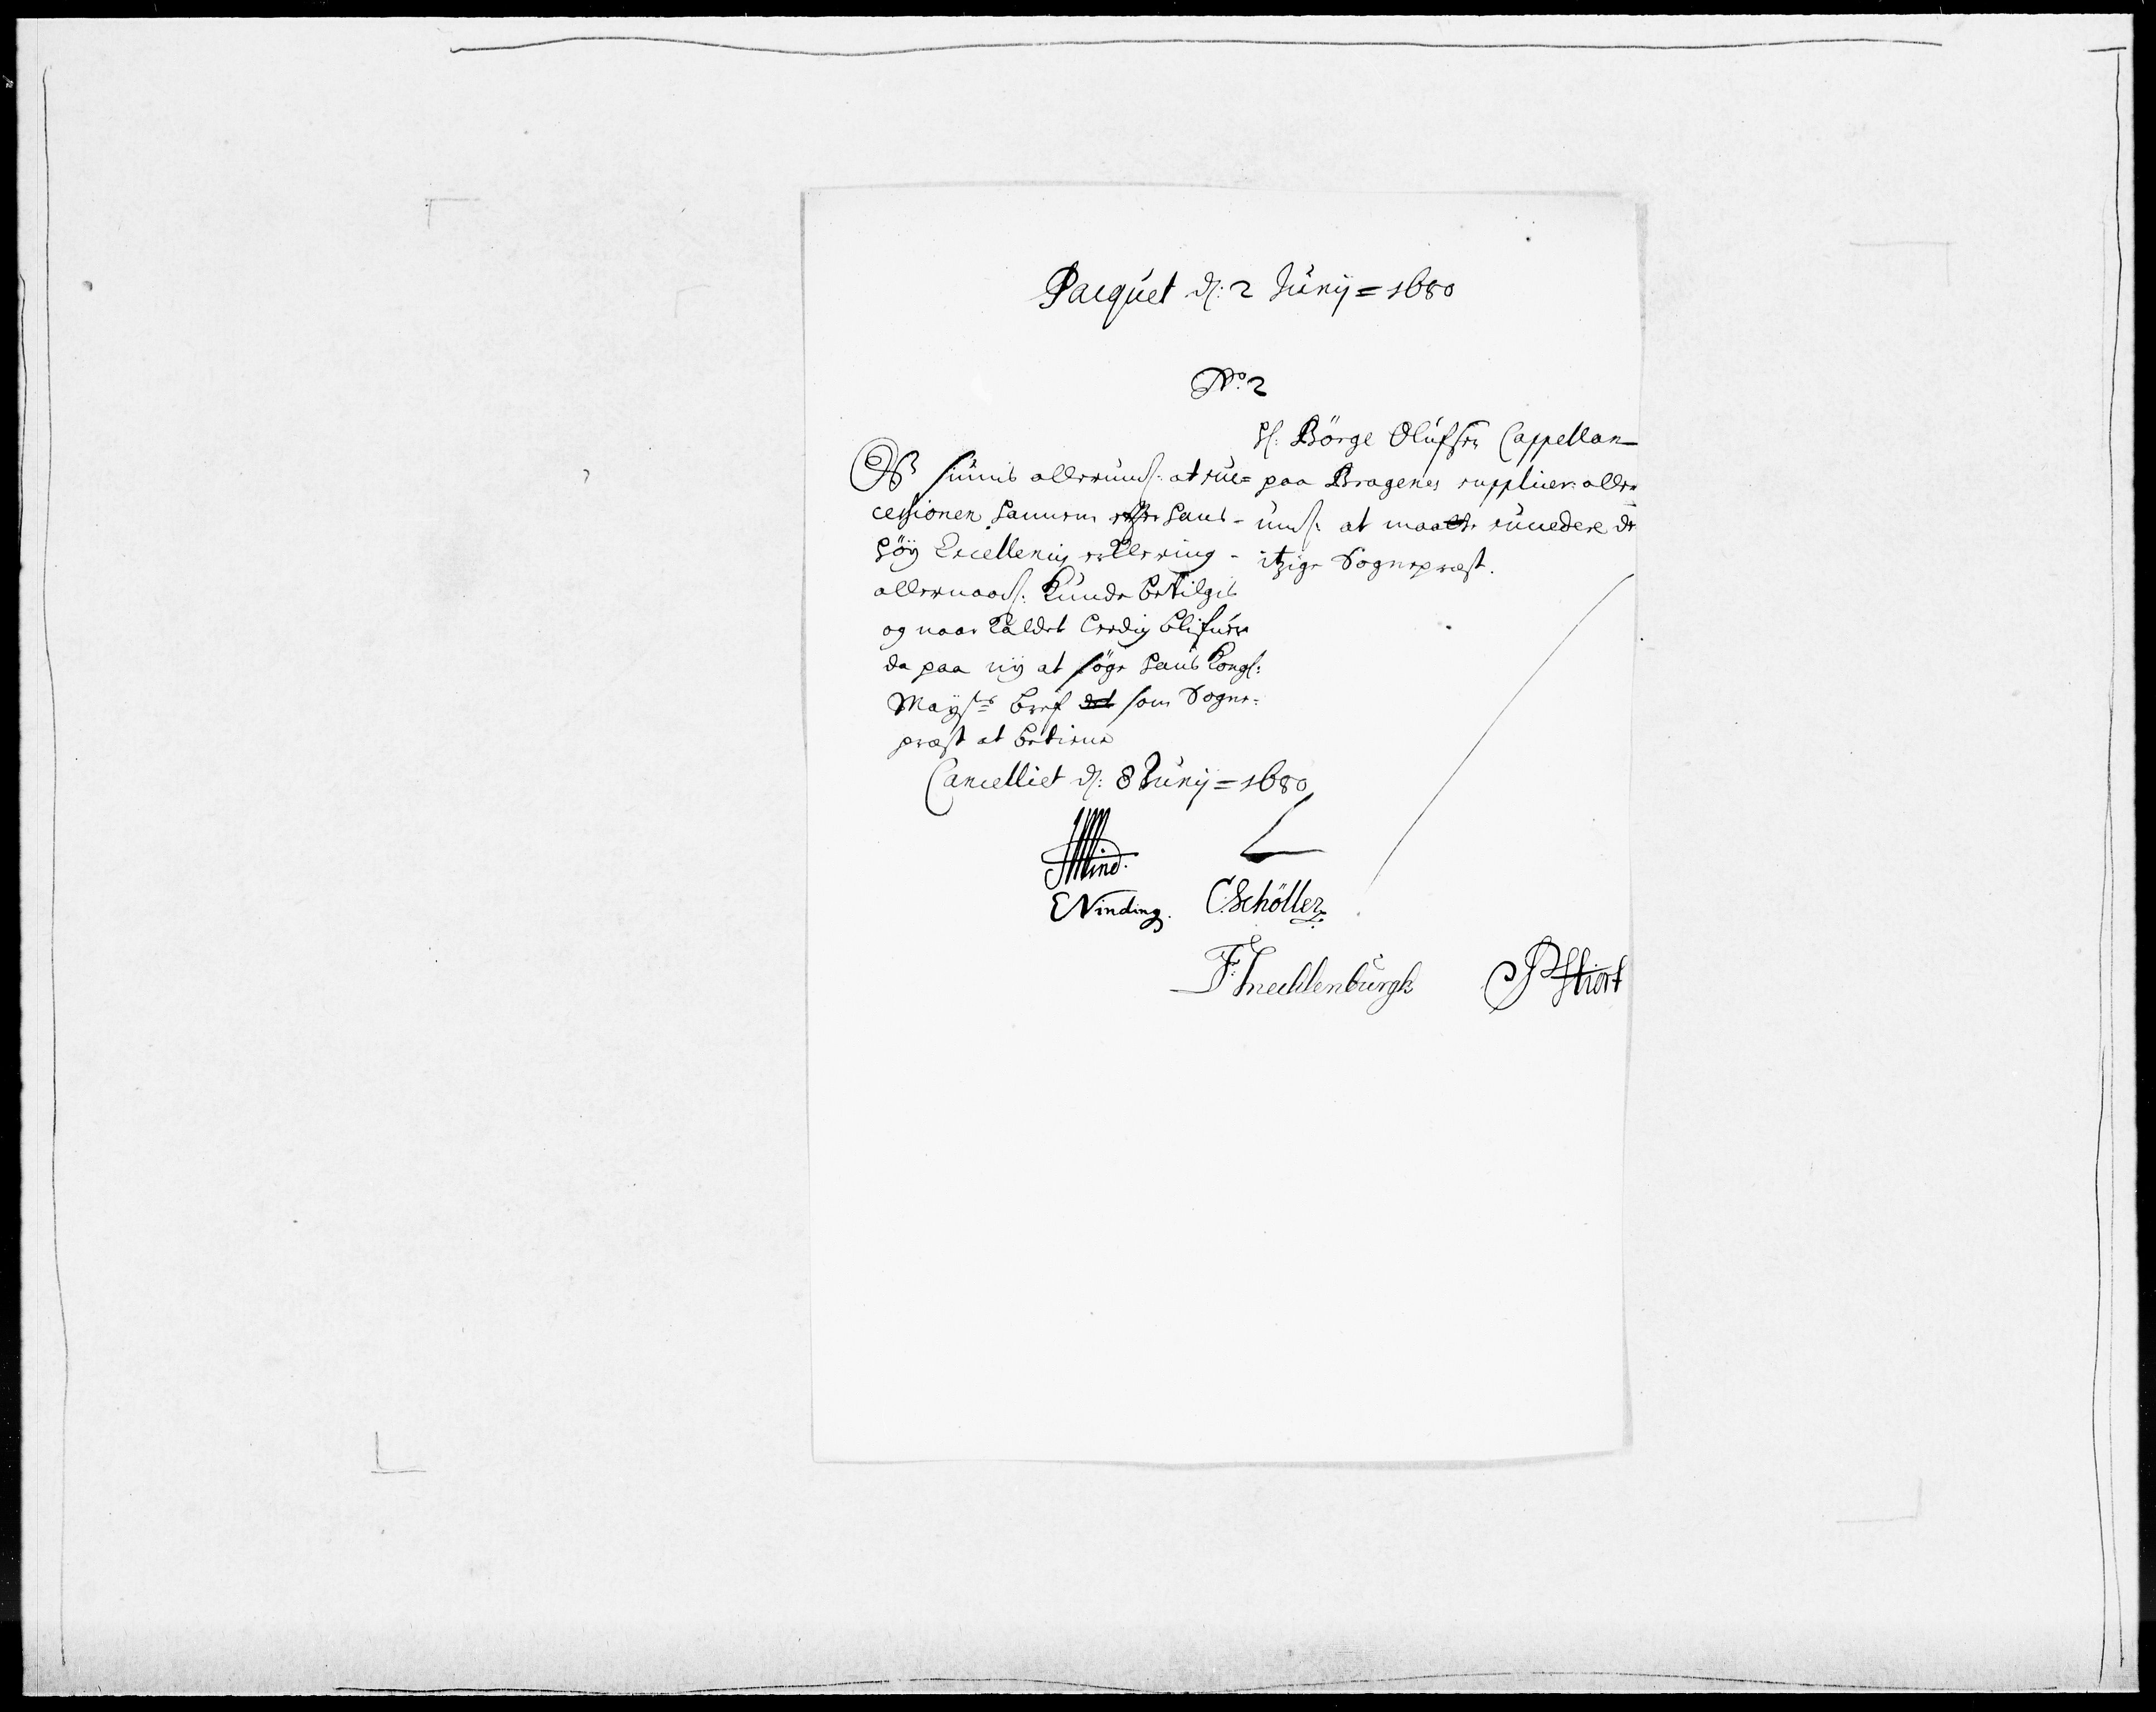 Pacquet d: 2 Junij = 1680
No. 2
H: Börge Olufsen Cappellan
paa Bragenes supplicer: aller
und: at maatte succedere dend
itzige Sognepræst.
Os siunis allerund: at suc=
cessionen hannem efter hans
höy Excellentz erklering
allernaad: kunde bevilgis
og naar kaldet ledig blifuer
da paa nÿ at söge hans Kongl:
Mayts bref det som Sogne=
præst at betiene
Cancelliet d: 8 Junij = 1680
Wind.
EVinding. C: Schöller
F: Mecklenburgk P Hiort